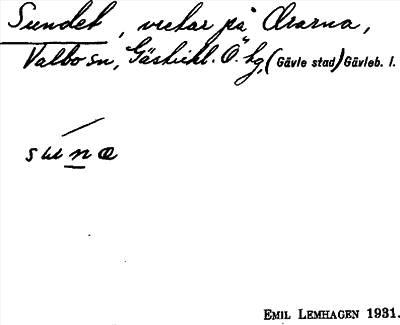 Sundet, vretar på Örarna,
Valbo sn, Gästrikl. Ö. hg, (Gävle stad) Gävleb. l.
EMIL LEMHAGEN 1931.